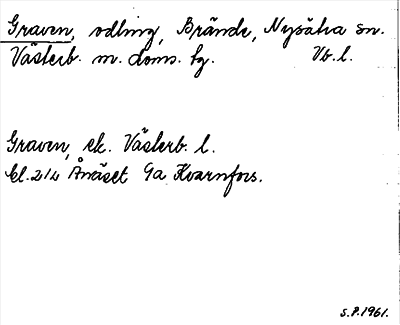 Graven, odling, Brände, Nysätra sn.
Västerb. m. doms. hg. Vb. l.
Graven, ek. Västerb. l.
bl. 214 Ånäset 9a Kvarnfors.
S.P. 1961.